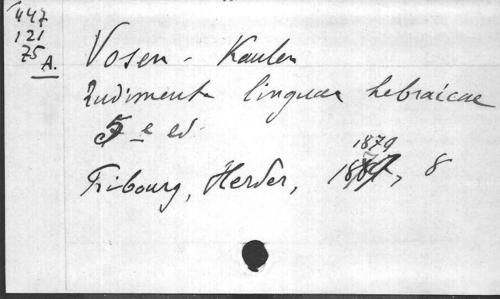 447
121
75
A.
Vosen - Kaulen
Rudimenta linguae hebraicae
5e ed.
1879
Fribourg, Herder, 18, 8